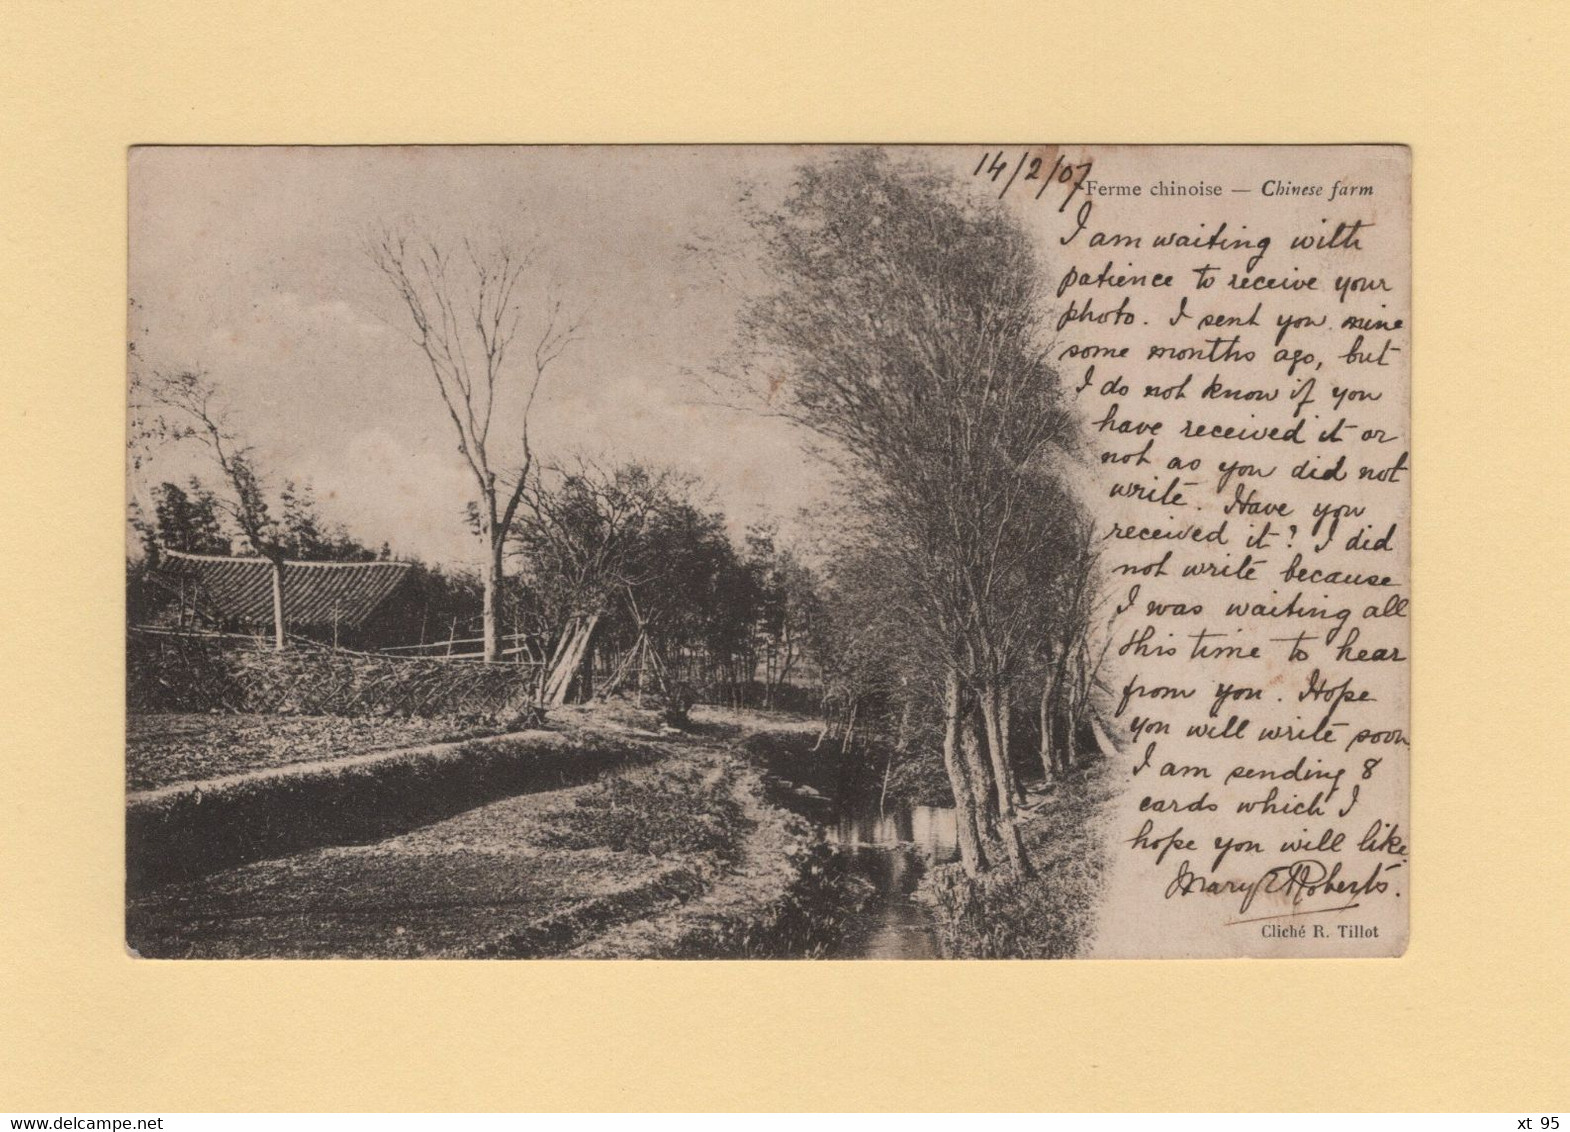 14/2/07
Ferme chinoise — Chinese farm
I am waiting with
patience to receive your
photo. I sent you mine
some months ago, but
I do not know if you
have received it or
not as you did not
write. Have you
received it? I did
not write because
I was waiting all
this time to hear
from you. Hope
you will write soon
I am sending 8
cards which I
hope you will like.
Mary E Roberts.
Cliché R. Tillot
delcampe.net
xt_95